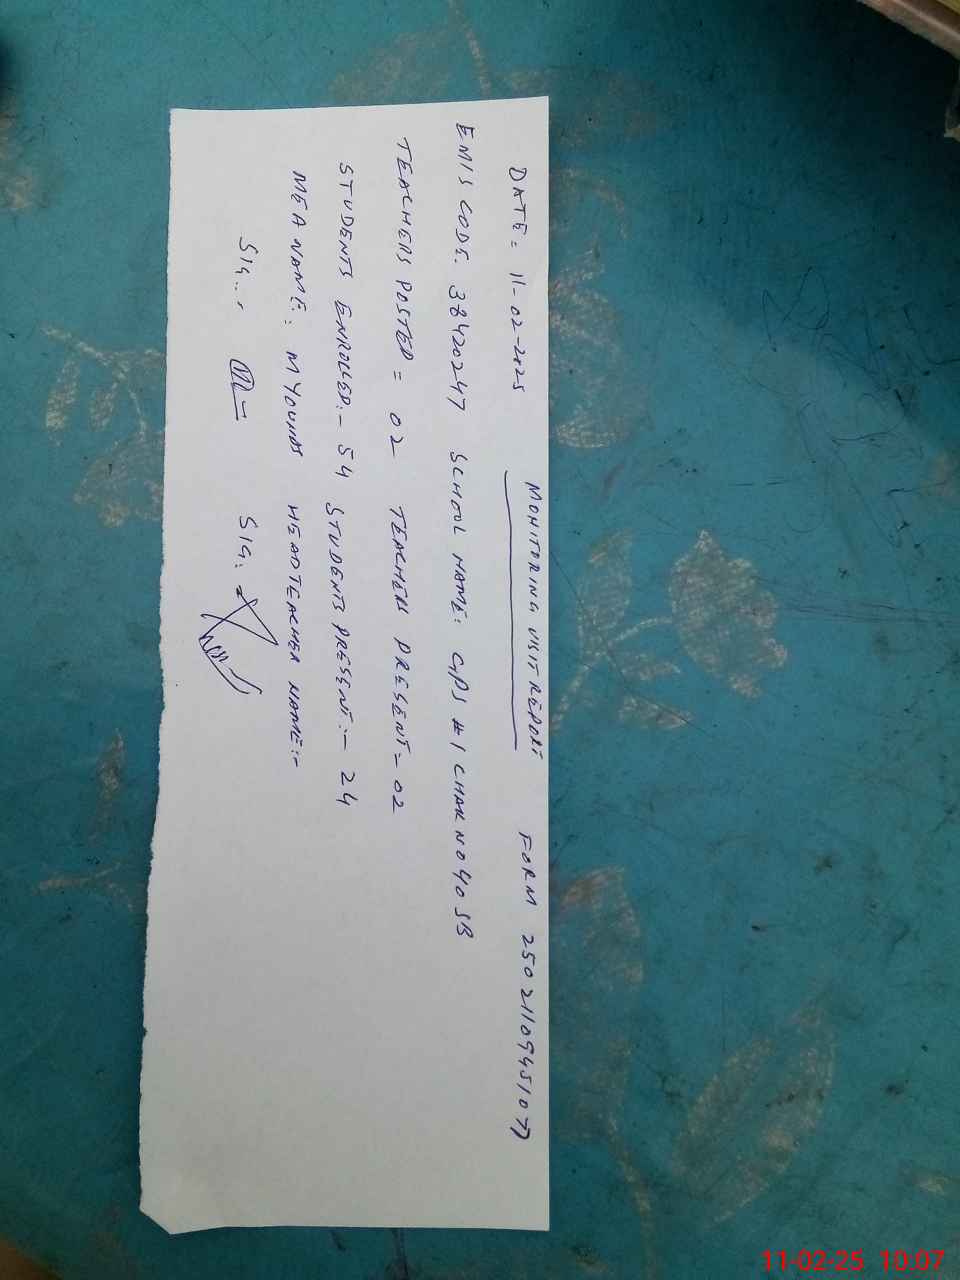 DATE = 11-02-2025 MONITORING VISIT REPORT FORM 25021109451077
EMIS CODE. 38420247 SCHOOL NAME: GPS #1 CHAK NO 40 SB
TEACHERS POSTED = 02 TEACHER PRESENT = 02
STUDENTS ENROLLED:- 54 STUDENTS PRESENT:- 24
MEA NAME: M YOUNAS HEADTEACHER NAME:-
SIG.. SIG.
11-02-25 10.07